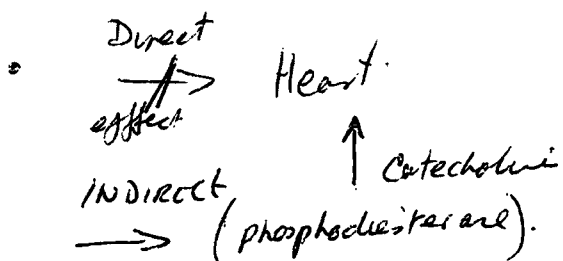 Direct
effect
Heart.
Catecholami
INDIRECT
(phosphodiesterase).